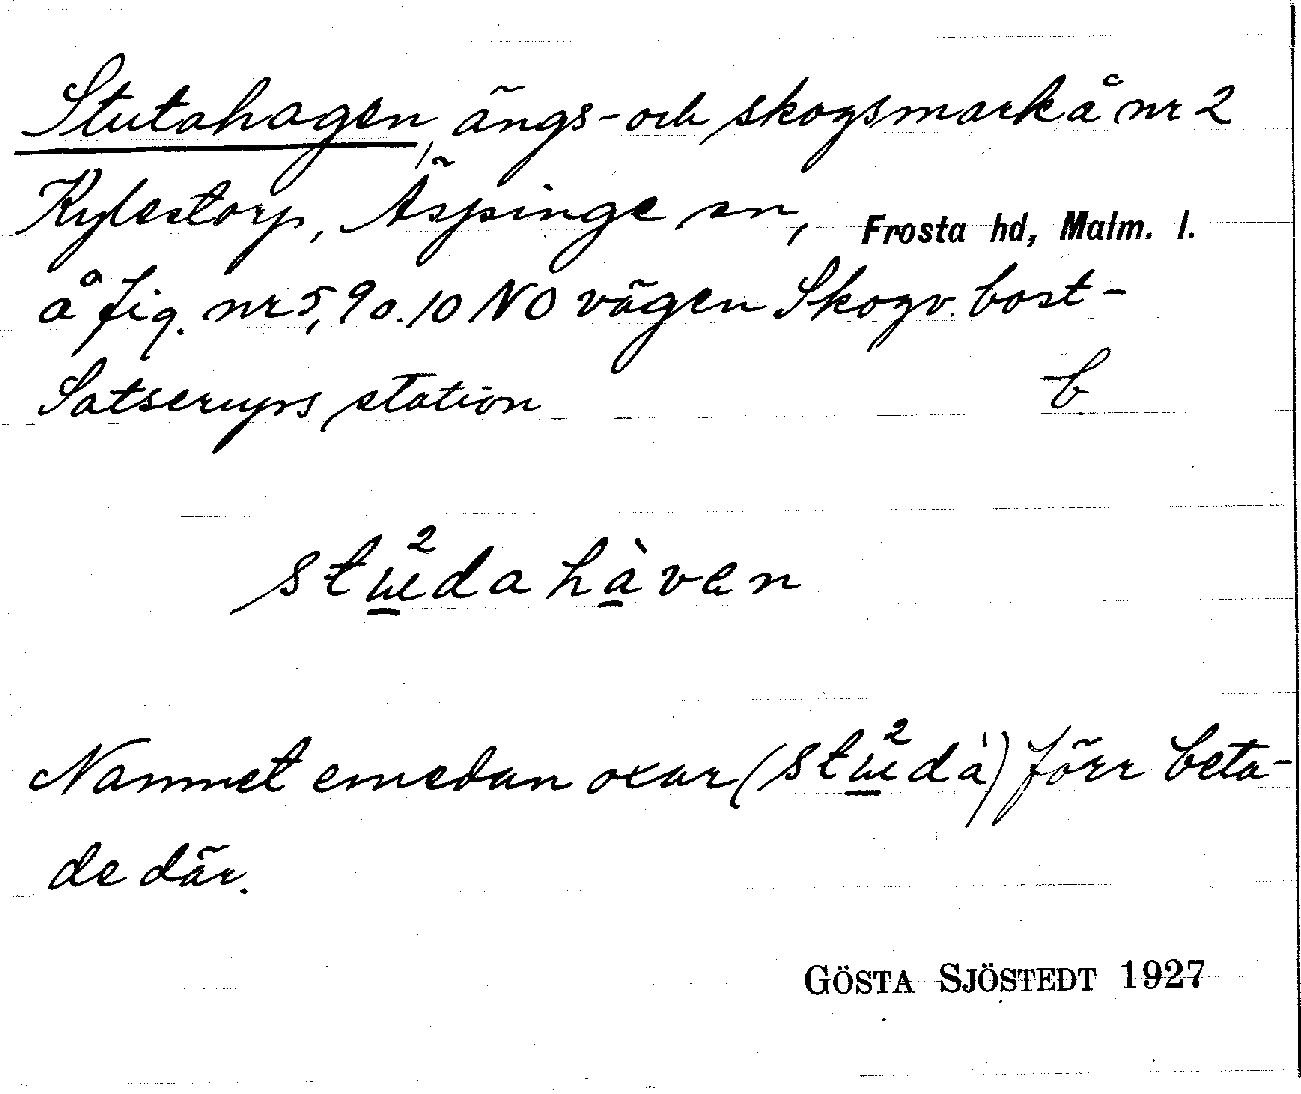 Stutahagen, ängs- och skogsmark å nr 2
Kylestorp, Äspinge sn, Frosta hd, Malm. l.
å fig. nr 5, 9 o. 10 NO vägen Skogv. bost-
Satserups station b
stu̲²dahà̲ven
Namnet emedan oxar (stu̲²dà) förr beta-
de där.
GÖSTA SJÖSTEDT 1927